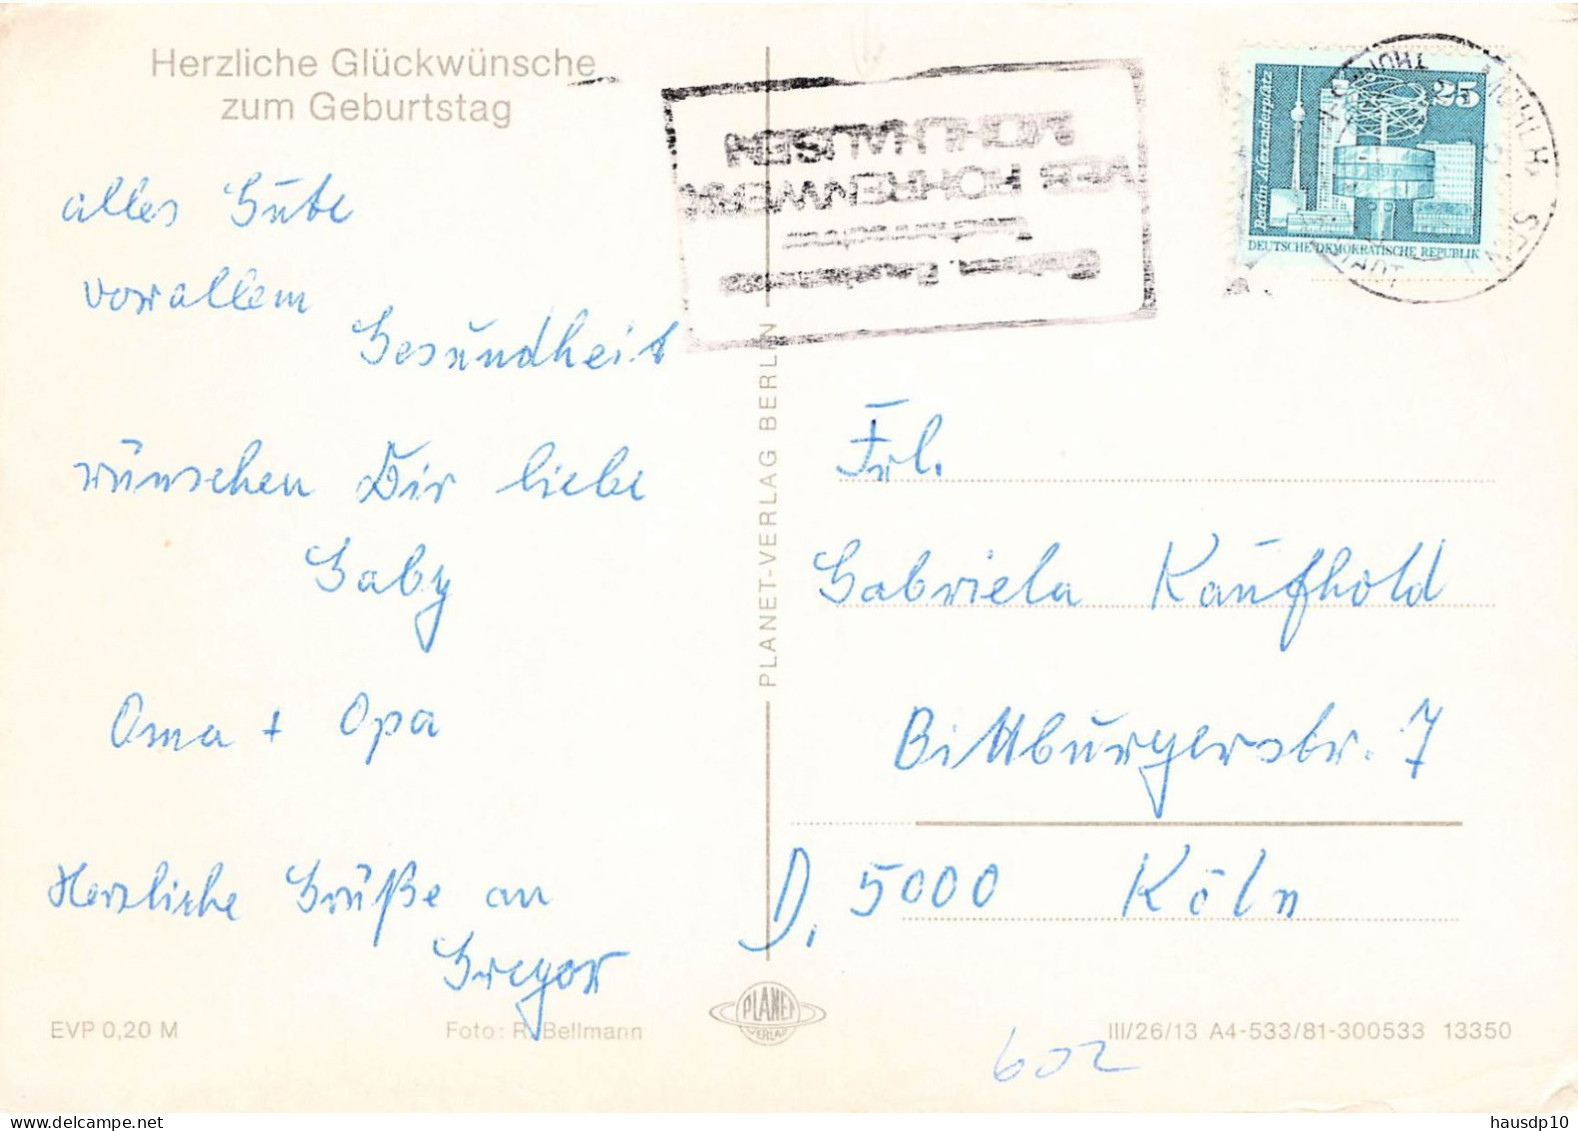 Herzliche Glückwünsche
zum Geburtstag
alles Gute
vor allem
Gesundheit
wünschen Dir liebe
Gaby
Oma + Opa
Herzliche Grüße an
Gregor
EVP 0,20 M
Foto: R. Bellmann
PLANET-VERLAG BERLIN
PLANET
VERLAG
MÜHLHAUSEN
VEB RÖHRENWERK
25
Berlin Alexanderplatz
DEUTSCHE DEMOKRATISCHE REPUBLIK
Frl.
Gabriela Kaufhold
Bittburgerstr. 7
D, 5000 Köln
III/26/13 A4-533/81-300533 13350
602
hausdp10